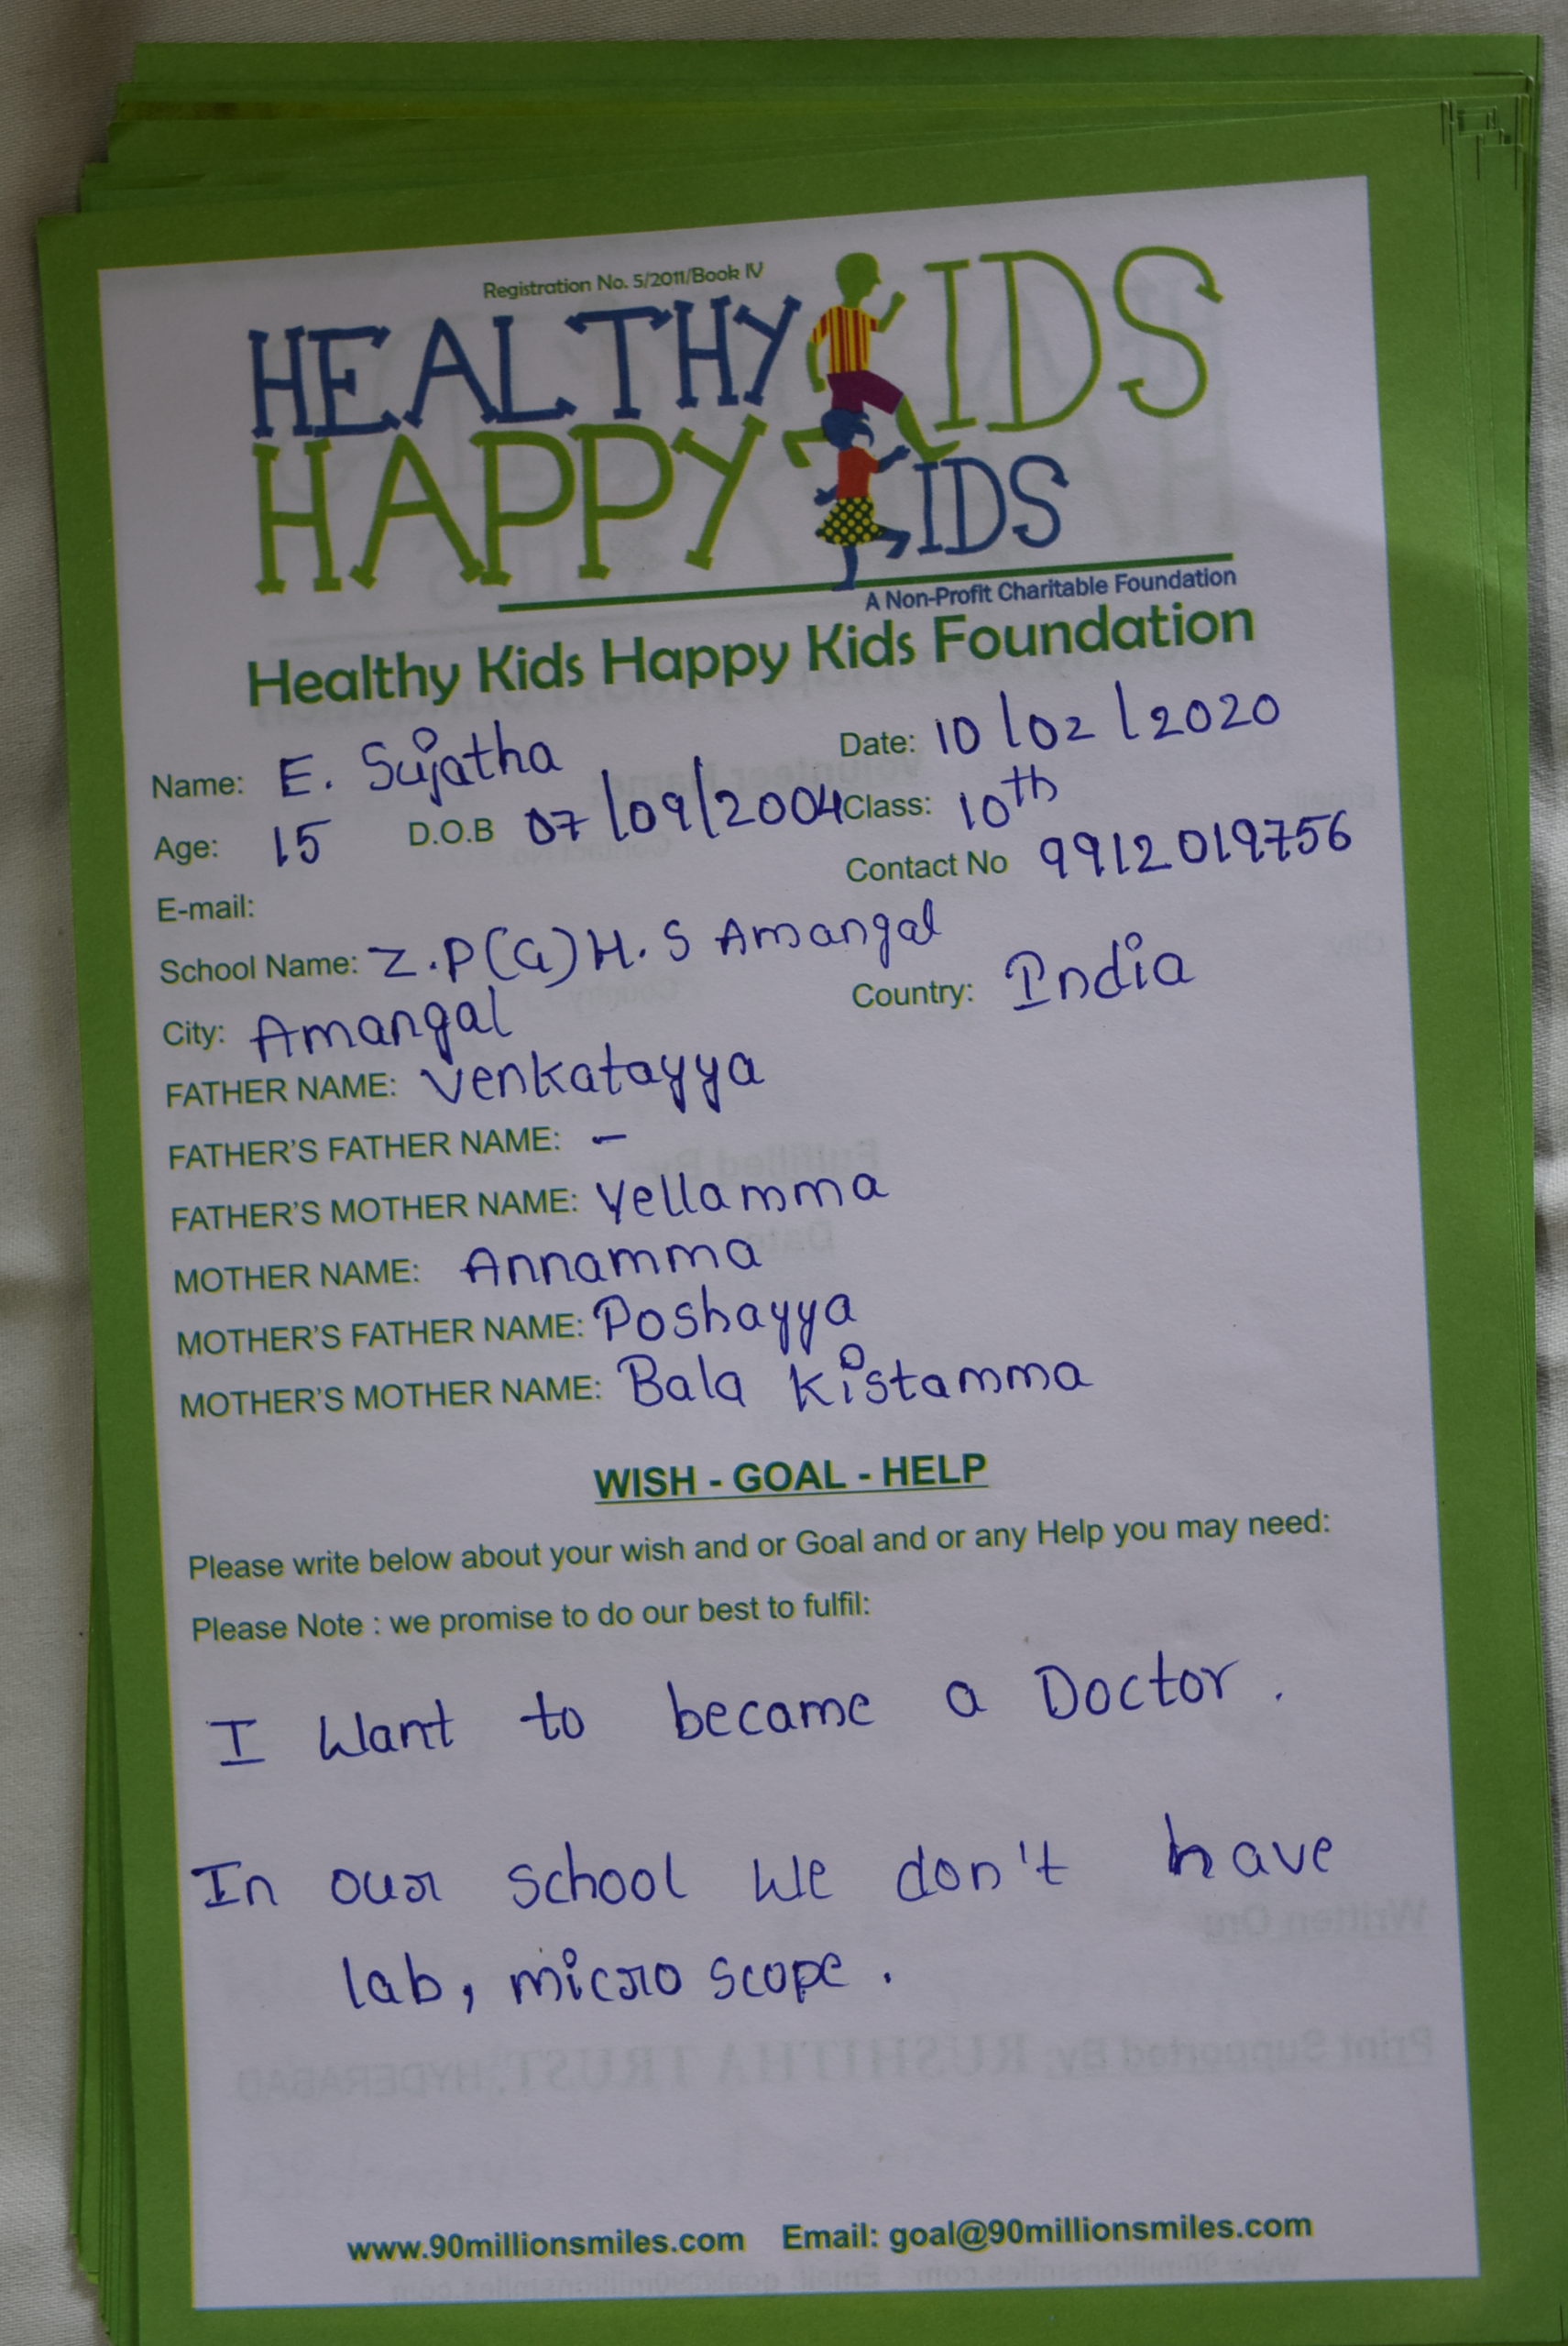 Registration No. 5/2011/Book IV
HEALTHY KIDS
HAPPY KIDS
A Non-Profit Charitable Foundation
Healthy Kids Happy Kids Foundation
Name: E. Sujatha Date: 10/02/2020
Age: 15 D.O.B 07/09/2004 Class: 10th
E-mail: Contact No 9912019756
School Name: Z.P(G)H.S Amangal
City: Amangal Country: India
FATHER NAME: Venkatayya
FATHER'S FATHER NAME: -
FATHER'S MOTHER NAME: Yellamma
MOTHER NAME: Annamma
MOTHER'S FATHER NAME: Poshayya
MOTHER'S MOTHER NAME: Bala Kistamma
WISH - GOAL - HELP
Please write below about your wish and or Goal and or any Help you may need:
Please Note : we promise to do our best to fulfil:
I Want to became a Doctor.
In our school We don't have
lab, micro scope.
www.90millionsmiles.com Email: goal@90millionsmiles.com